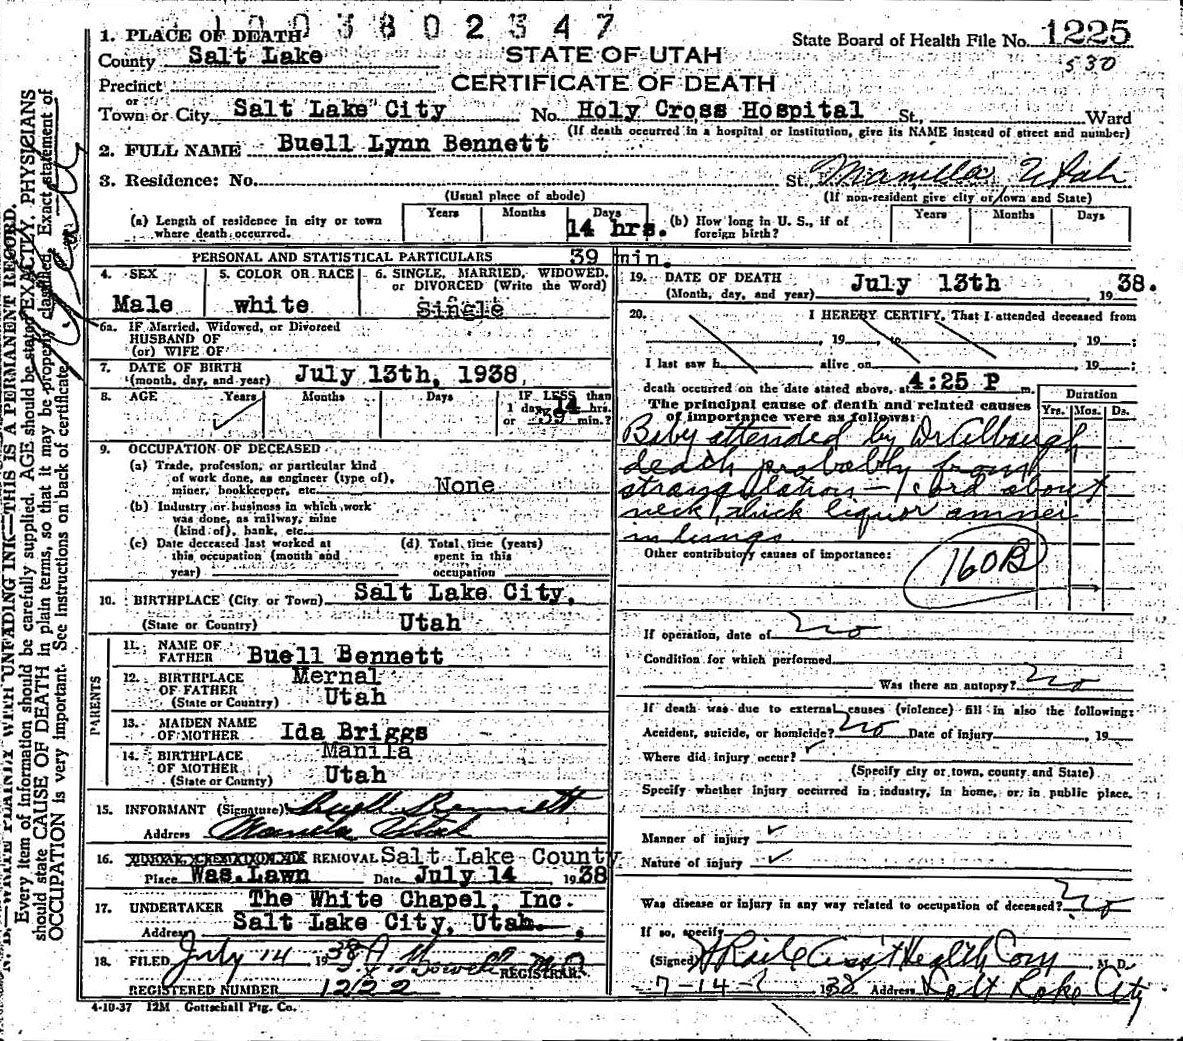 1003802347
1. PLACE OF DEATH
County Salt Lake
STATE OF UTAH
State Board of Health File No. 1225
530
Precinct
CERTIFICATE OF DEATH
or
Town or City Salt Lake City No. Holy Cross Hospital St., Ward
(If death occurred in a hospital or institution, give its NAME instead of street and number)
2. FULL NAME Buell Lynn Bennett
3. Residence: No. St. Manilla, Utah
(Usual place of abode) (If non-resident give city or town and State)
(a) Length of residence in city or town where death occurred. Years Months Days 14 hrs. (b) How long in U. S., if of foreign birth? Years Months Days
39 min.
PERSONAL AND STATISTICAL PARTICULARS
4. SEX Male
5. COLOR OR RACE white
6. SINGLE, MARRIED, WIDOWED, or DIVORCED (Write the Word) Single
6a. IF Married, Widowed, or Divorced
HUSBAND OF
(or) WIFE OF
7. DATE OF BIRTH
(month, day, and year) July 13th, 1938,
8. AGE Years Months Days IF LESS than
1 day 14 hrs.
or 39 min.?
9. OCCUPATION OF DECEASED
(a) Trade, profession, or particular kind
of work done, as engineer (type of),
miner, bookkeeper, etc. None
(b) Industry or business in which work
was done, as railway, mine
(kind of), bank, etc.
(c) Date deceased last worked at
this occupation (month and
year)
(d) Total time (years)
spent in this
occupation
10. BIRTHPLACE (City or Town) Salt Lake City,
(State or Country) Utah
PARENTS
11. NAME OF
FATHER Buell Bennett
12. BIRTHPLACE
OF FATHER
(State or Country) Mernal
Utah
13. MAIDEN NAME
OF MOTHER Ida Briggs
14. BIRTHPLACE
OF MOTHER
(State or County) Manila
Utah
15. INFORMANT (Signature) Buell Bennett
Address Manila Utah
16. BURIAL, CREMATION, OR REMOVAL Salt Lake County
Place Was. Lawn Date July 14 1938
17. UNDERTAKER The White Chapel, Inc.
Address Salt Lake City, Utah.
18. FILED July 14 1938 M.D.
REGISTRAR
REGISTERED NUMBER 1222
4-10-37 12M Gottschall Ptg. Co.
19. DATE OF DEATH
(Month, day, and year) July 13th 1938.
20. I HEREBY CERTIFY, That I attended deceased from
, 19 , to , 19 ;
I last saw h alive on 19 ;
death occurred on the date stated above, at 4:25 P m.
The principal cause of death and related causes
of importance were as follows:
Duration
Yrs. Mos. Ds.
Baby attended by Dr Albaugh
death probably from
strangulation - cord about
neck, thick liquor amnii
in lungs
Other contributory causes of importance:
160B
If operation, date of no
Condition for which performed
Was there an autopsy? no
If death was due to external causes (violence) fill in also the following:
Accident, suicide, or homicide? No Date of injury , 19
Where did injury occur?
(Specify city or town, county and State)
Specify whether injury occurred in industry, in home, or in public place.
Manner of injury
Nature of injury
Was disease or injury in any way related to occupation of deceased? no
If so, specify
(Signed) Ass't Health Com M. D.
7-14- 1938 Address Salt Lake City
N. B.—WRITE PLAINLY WITH UNFADING INK—THIS IS A PERMANENT RECORD.
Every item of information should be carefully supplied. AGE should be stated EXACTLY. PHYSICIANS
should state CAUSE OF DEATH in plain terms, so that it may be properly classified. Exact statement of
OCCUPATION is very important. See instructions on back of certificate.